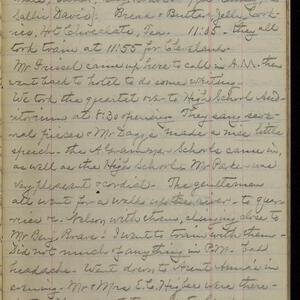 Sallie Davis): Bread & Butter, Jelly, Cook-
ies, Hot Chocolate, Tea. 11:35 - they all
took train at 11:55 for Cleveland.
Mr. came up here to call in A.M. then
went back to hotel to do some writing.
We took the quartet over to High School Aud-
itorium at for opening. They sang sev-
eral pieces & Mr. made a nice little
speech - the A Grammar Schools came in,
as well as the High School. Mr. Parker was
very pleasant & cordial. The gentlemen
all went for a walk up the river - to quar-
ries &c. Nelson with them, clinging close to
Mr. Ben I went to train with them -
Did not much of anything in P.M. bad
headache. Went down to Aunt Annie's in
evening. Mr. & Mrs. E.C. Hughes were there -